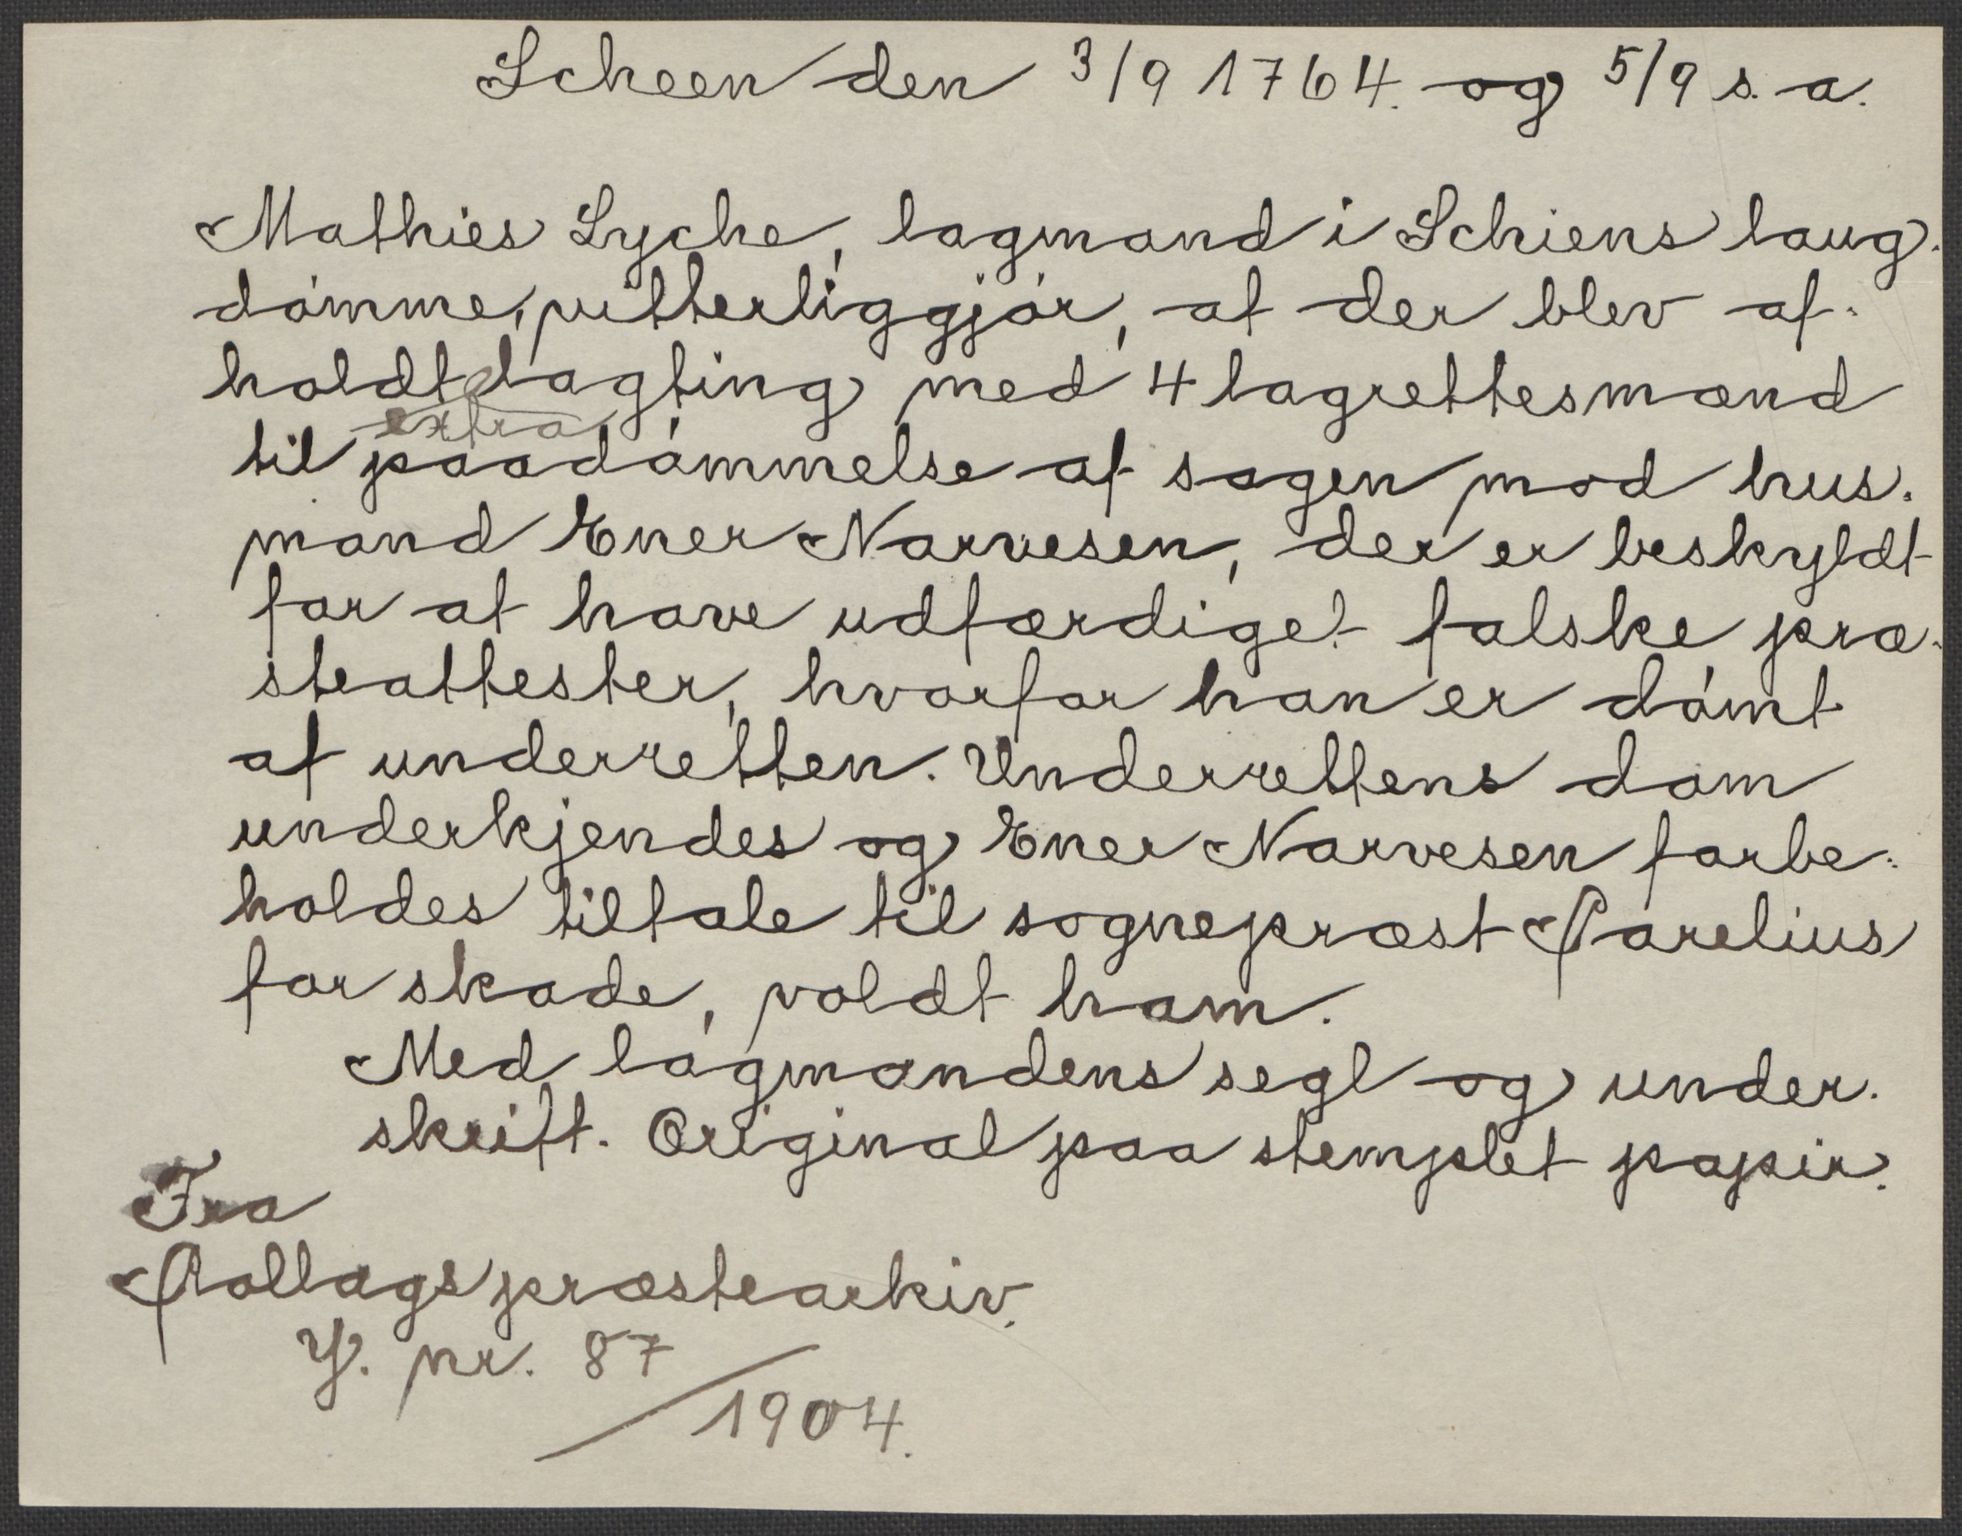 Scheen den 3/9 1764. og 5/9 s. a.
Mathies Lyche, lagmand i Schiens laug-
dømme, vitterliggjør, at der blev af-
holdt lagting med 4 lagrettesmænd
extra
til paadømmelse af sagen mod hus-
mand Ener Narvesen, der er beskyldt
for at have udfærdiget falske præ-
steattester, hvorfor han er dømt
af underretten. Underrettens dom
underkjendes og Ener Narvesen forbe-
holdes tiltale til sogneprest Parelius
for skade, voldt ham.
Med lagmandens segl og under-
skrift. Original paa stemplet papir.
Fra
Rollags præstearkiv.
Y. nr. 87
/1904.